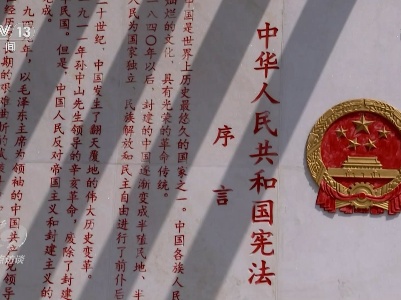 中华人民共和国宪法
序言
中国是世界上历史最悠久的国家之一。中国各族人
灿烂的文化，具有光荣的革命传统。
一八四〇年以后，封建的中国逐渐变成半殖民地、半
人民为国家独立、民族解放和民主自由进行了前仆后
二十世纪，中国发生了翻天覆地的伟大历史变革。
一九一一年孙中山先生领导的辛亥革命，废除了封建
民国。但是，中国人民反对帝国主义和封建主义的
完成。
九四九年，以毛泽东主席为领袖的中国共产党领导
期的艰难曲折的
13
间